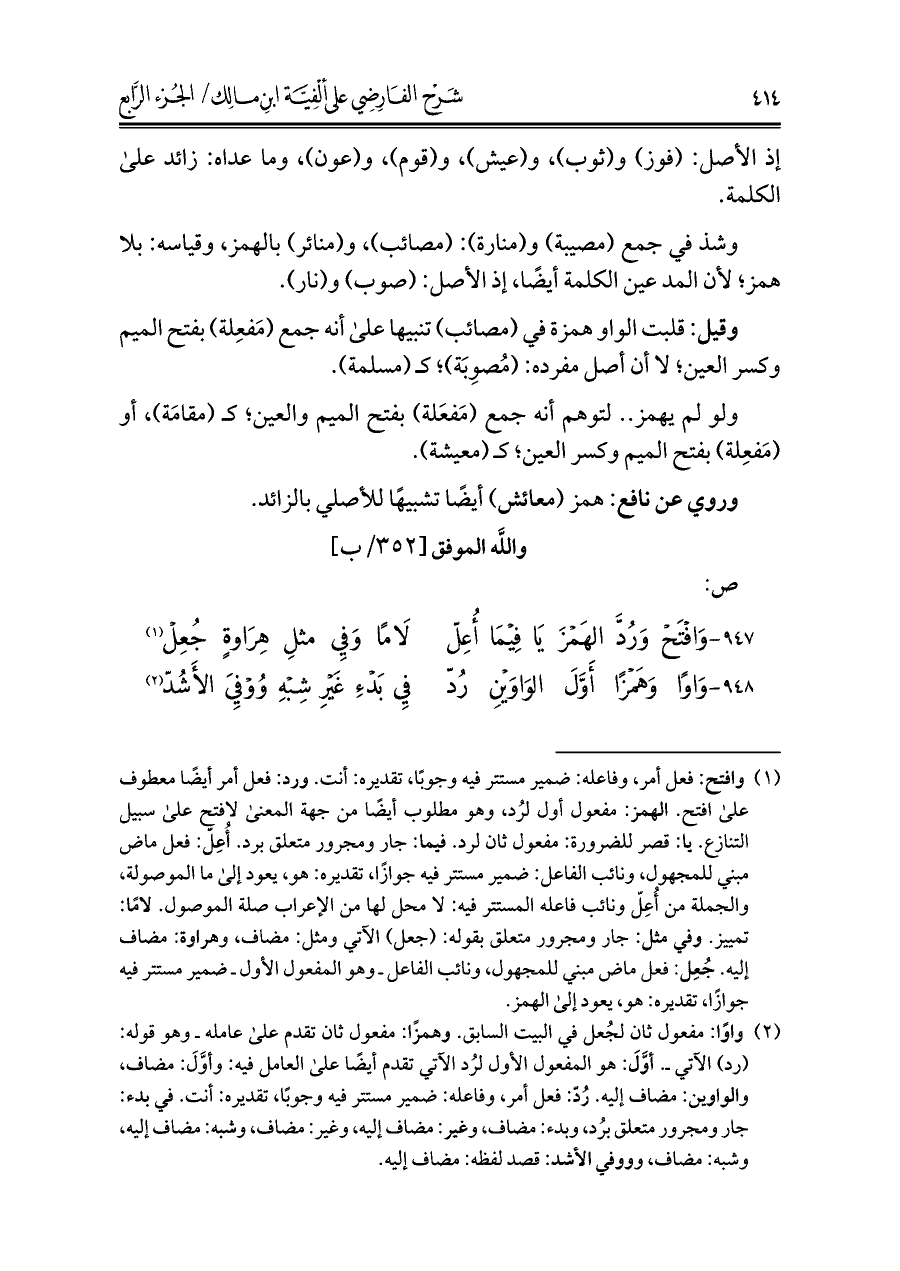 ٤١٤ شَرْح الفَارِضِي على ألْفِيَّة ابنِ مالِك/ الجُزء الرَّابع
إذ الأصل: (فوز) و(ثوب)، و(عيش)، و(قوم)، و(عون)، وما عداه: زائد علىٰ
الكلمة.
وشذ في جمع (مصيبة) و(منارة): (مصائب)، و(منائر) بالهمز، وقياسه: بلا
همز؛ لأن المد عين الكلمة أيضًا، إذ الأصل: (صوب) و(نار).
وقيل: قلبت الواو همزة في (مصائب) تنبيها علىٰ أنه جمع (مَفعِلة) بفتح الميم
وكسر العين؛ لا أن أصل مفرده: (مُصوِبَة)؛ كـ (مسلمة).
ولو لم يهمز.. لتوهم أنه جمع (مَفعَلة) بفتح الميم والعين؛ كـ (مقامَة)، أو
(مَفعِلة) بفتح الميم وكسر العين؛ كـ (معيشة).
وروي عن نافع: همز (معائش) أيضًا تشبيهًا للأصلي بالزائد.
واللَّه الموفق [٣٥٢/ ب]
ص:
٩٤٧-وَافْتَحْ وَرُدَّ الهَمْزَ يَا فِيْمَا أُعِلّ لَامًا وَفِي مثلِ هِرَاوةٍ جُعِلْ(١)
٩٤٨-وَاوًا وَهَمْزًا أَوَّلَ الوَاوَيْنِ رُدّ فِي بَدْءِ غَيْرِ شِبْهِ وُوْفِيَ الأَشُدّ(٢)
(١) وافتح: فعل أمر، وفاعله: ضمير مستتر فيه وجوبًا، تقديره: أنت. ورد: فعل أمر أيضًا معطوف
علىٰ افتح. الهمز: مفعول أول لرُد، وهو مطلوب أيضًا من جهة المعنىٰ لافتح علىٰ سبيل
التنازع. يا: قصر للضرورة: مفعول ثان لرد. فيما: جار ومجرور متعلق برد. أُعِلّ: فعل ماض
مبني للمجهول، ونائب الفاعل: ضمير مستتر فيه جوازًا، تقديره: هو، يعود إلىٰ ما الموصولة،
والجملة من أُعِلّ ونائب فاعله المستتر فيه: لا محل لها من الإعراب صلة الموصول. لامًا:
تمييز. وفي مثل: جار ومجرور متعلق بقوله: (جعل) الآتي ومثل: مضاف، وهراوة: مضاف
إليه. جُعِل: فعل ماض مبني للمجهول، ونائب الفاعل ـ وهو المفعول الأول ـ ضمير مستتر فيه
جوازًا، تقديره: هو، يعود إلىٰ الهمز.
(٢) واوًا: مفعول ثان لجُعل في البيت السابق. وهمزًا: مفعول ثان تقدم علىٰ عامله ـ وهو قوله:
(رد) الآتي ـ. أوَّلَ: هو المفعول الأول لرُد الآتي تقدم أيضًا علىٰ العامل فيه: وأوَّلَ: مضاف،
والواوين: مضاف إليه. رُدّ: فعل أمر، وفاعله: ضمير مستتر فيه وجوبًا، تقديره: أنت. في بدء:
جار ومجرور متعلق برُد، وبدء: مضاف، وغير: مضاف إليه، وغير: مضاف، وشبه: مضاف إليه،
وشبه: مضاف، وووفي الأشد: قصد لفظه: مضاف إليه.